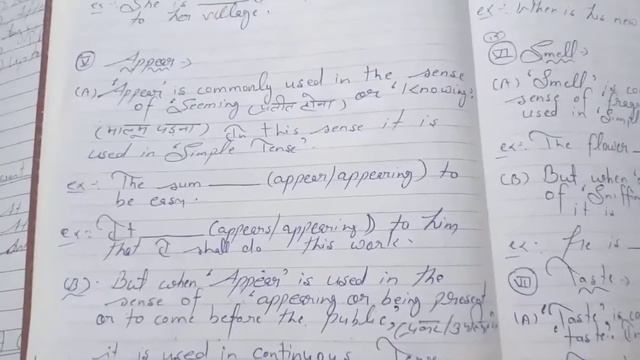 ex:- She is
to her village.
Ⓥ Appear:→
(A) 'Appear' is commonly used in the sense
of 'Seeming (प्रतीत होना) or 'Knowing'.
(मालूम पड़ना) In this sense it is
used in 'Simple Tense'.
ex:- The sum ______ (appear/appearing) to
be easy.
ex:- It ______ (appears/appearing) to him
that I shall do this work.
(B). But when 'Appear' is used in the
sense of 'appearing or being present
or to come before the public,'
it is used in continuous Tense
ex:- When is his new
Ⅵ Smell:→
(A) 'Smell' is
sense of
used in 'Simpl
ex:- The flower
(B) But when
of 'Sniffin
it is
ex:- He is
Ⅶ Taste:→
(A) "Taste' is
taste.